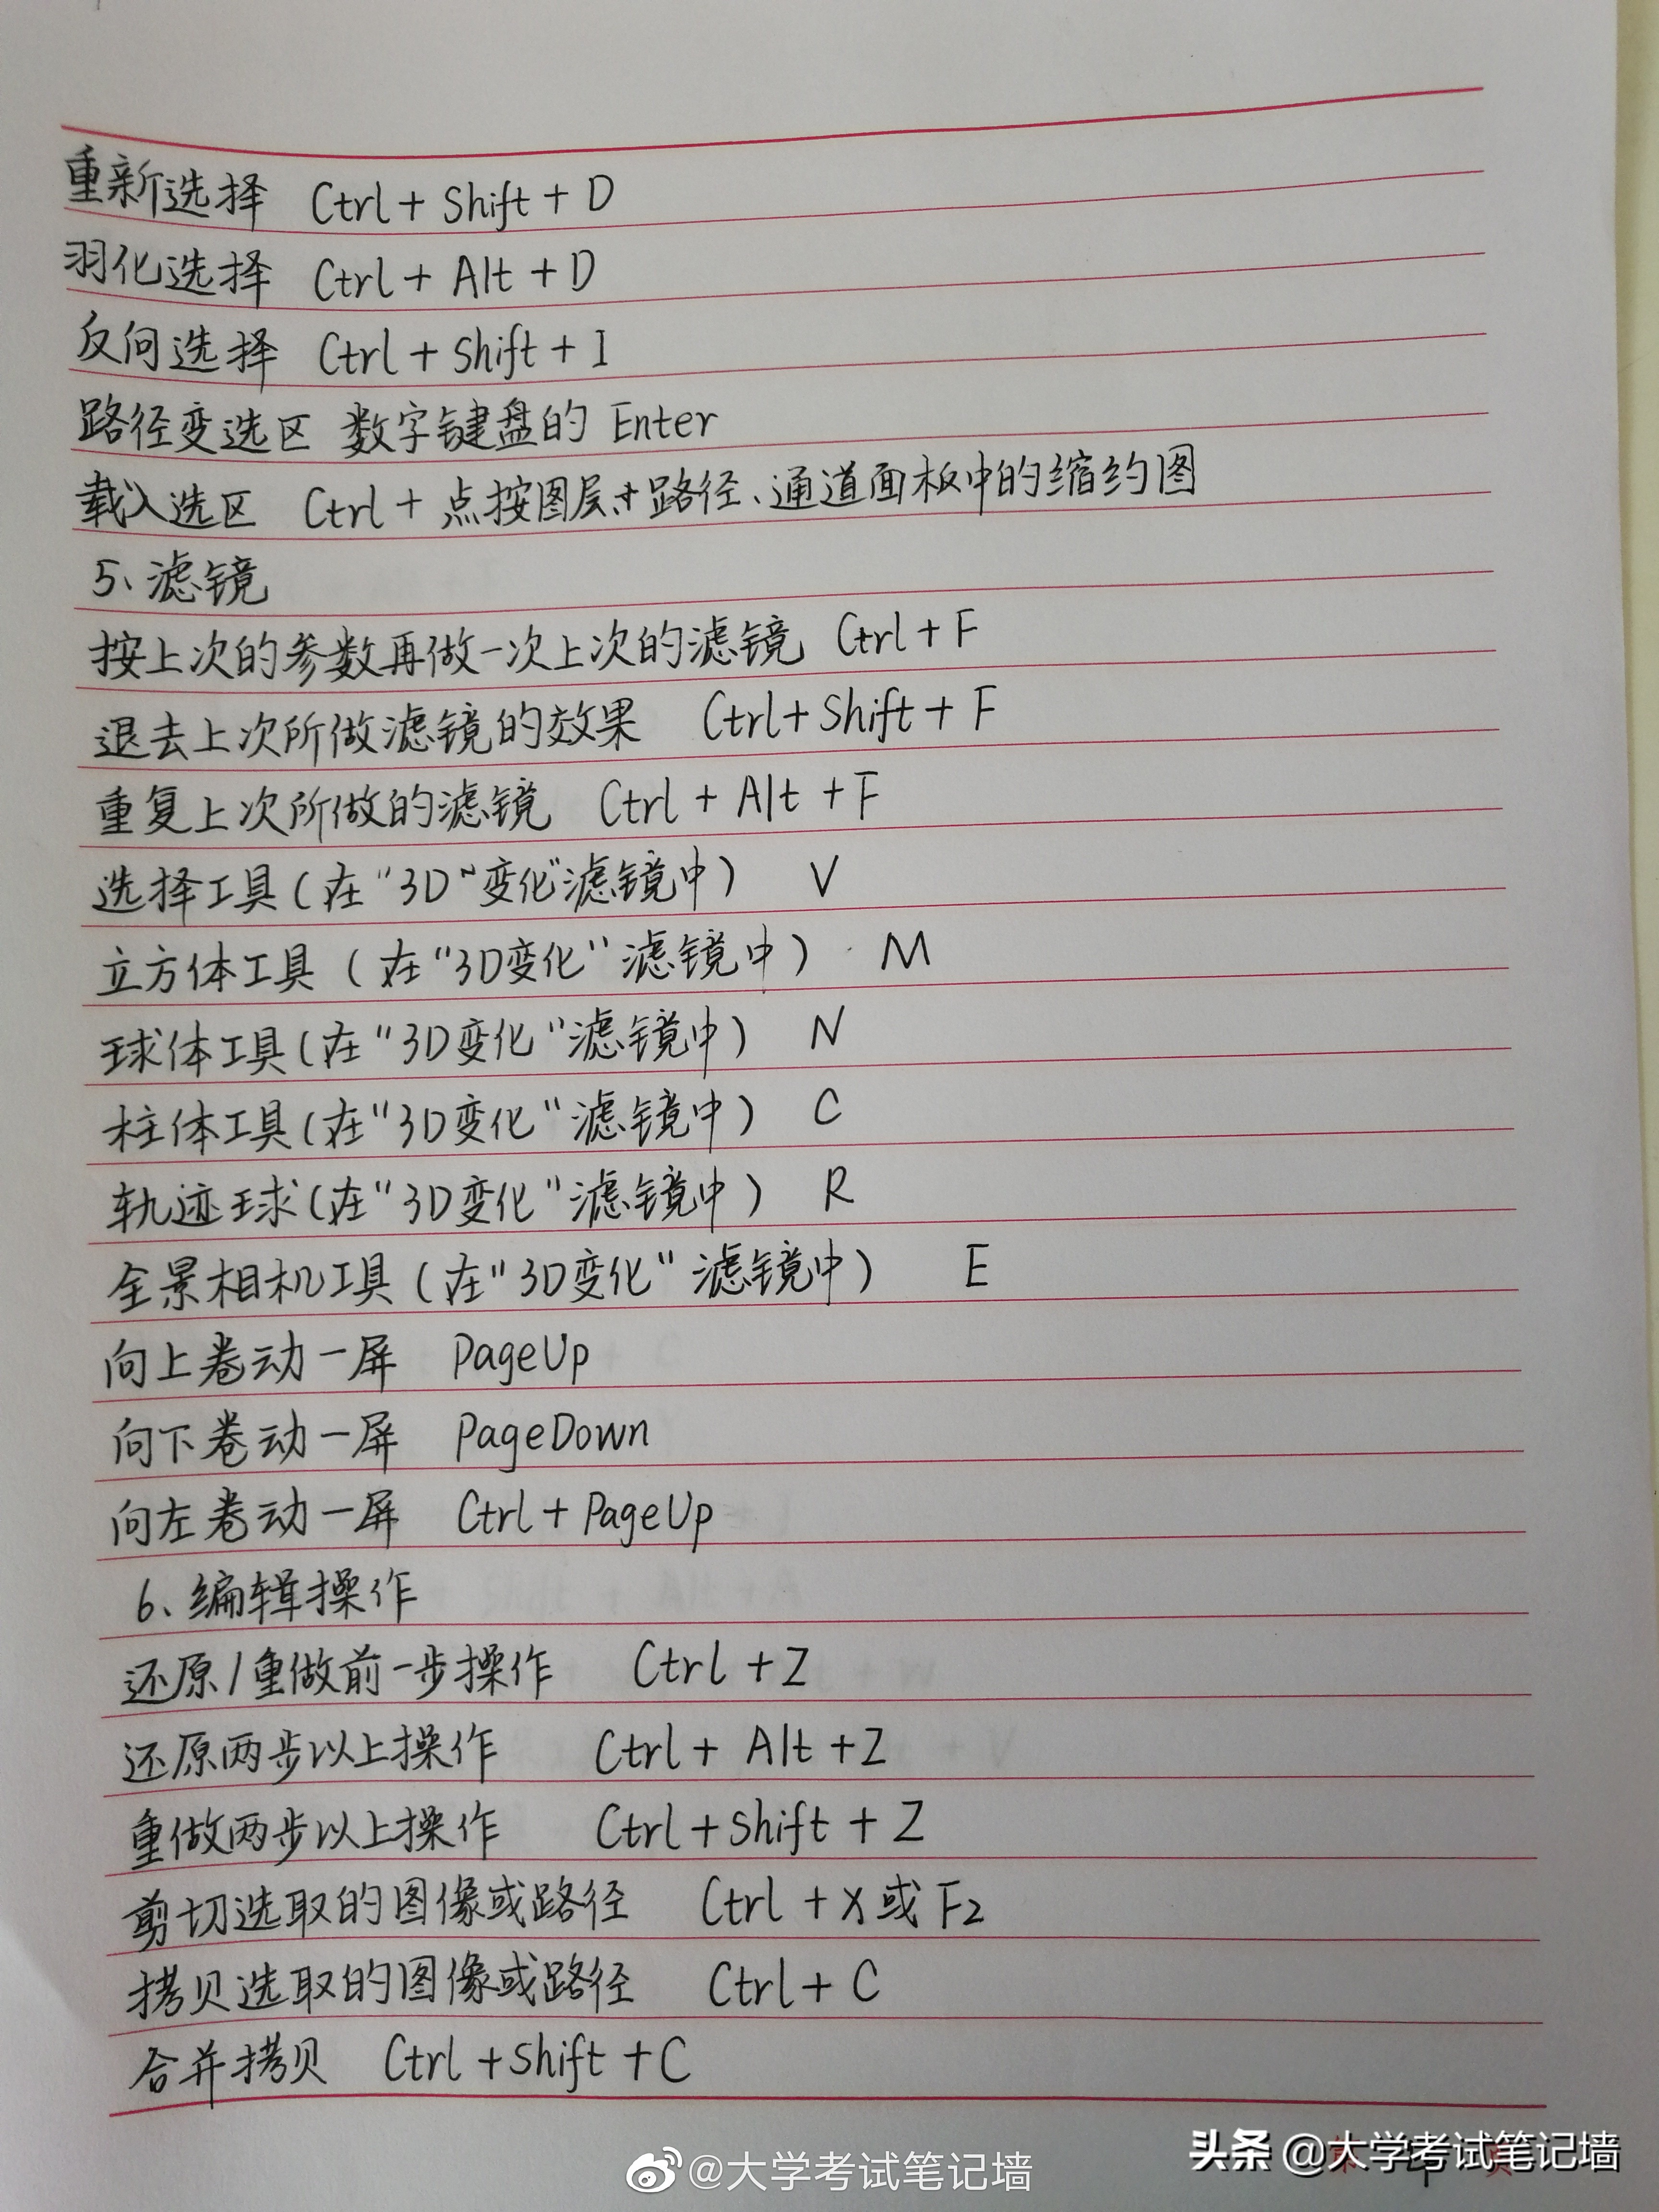 重新选择 Ctrl + Shift + D
羽化选择 Ctrl + Alt + D
反向选择 Ctrl + Shift + I
路径变选区 数字键盘的 Enter
载入选区 Ctrl + 点按图层、路径、通道面板中的缩约图
5、滤镜
按上次的参数再做一次上次的滤镜 Ctrl + F
退去上次所做滤镜的效果 Ctrl + Shift + F
重复上次所做的滤镜 Ctrl + Alt + F
选择工具(在“3D~变化”滤镜中) V
立方体工具(在“3D变化”滤镜中) M
球体工具(在“3D变化”滤镜中) N
柱体工具(在“3D变化”滤镜中) C
轨迹球(在“3D变化”滤镜中) R
全景相机工具(在“3D变化”滤镜中) E
向上卷动一屏 PageUp
向下卷动一屏 PageDown
向左卷动一屏 Ctrl + PageUp
6、编辑操作
还原/重做前一步操作 Ctrl + Z
还原两步以上操作 Ctrl + Alt + Z
重做两步以上操作 Ctrl + Shift + Z
剪切选取的图像或路径 Ctrl + X 或 F2
拷贝选取的图像或路径 Ctrl + C
合并拷贝 Ctrl + Shift + C
头条 @大学考试笔记墙
@大学考试笔记墙